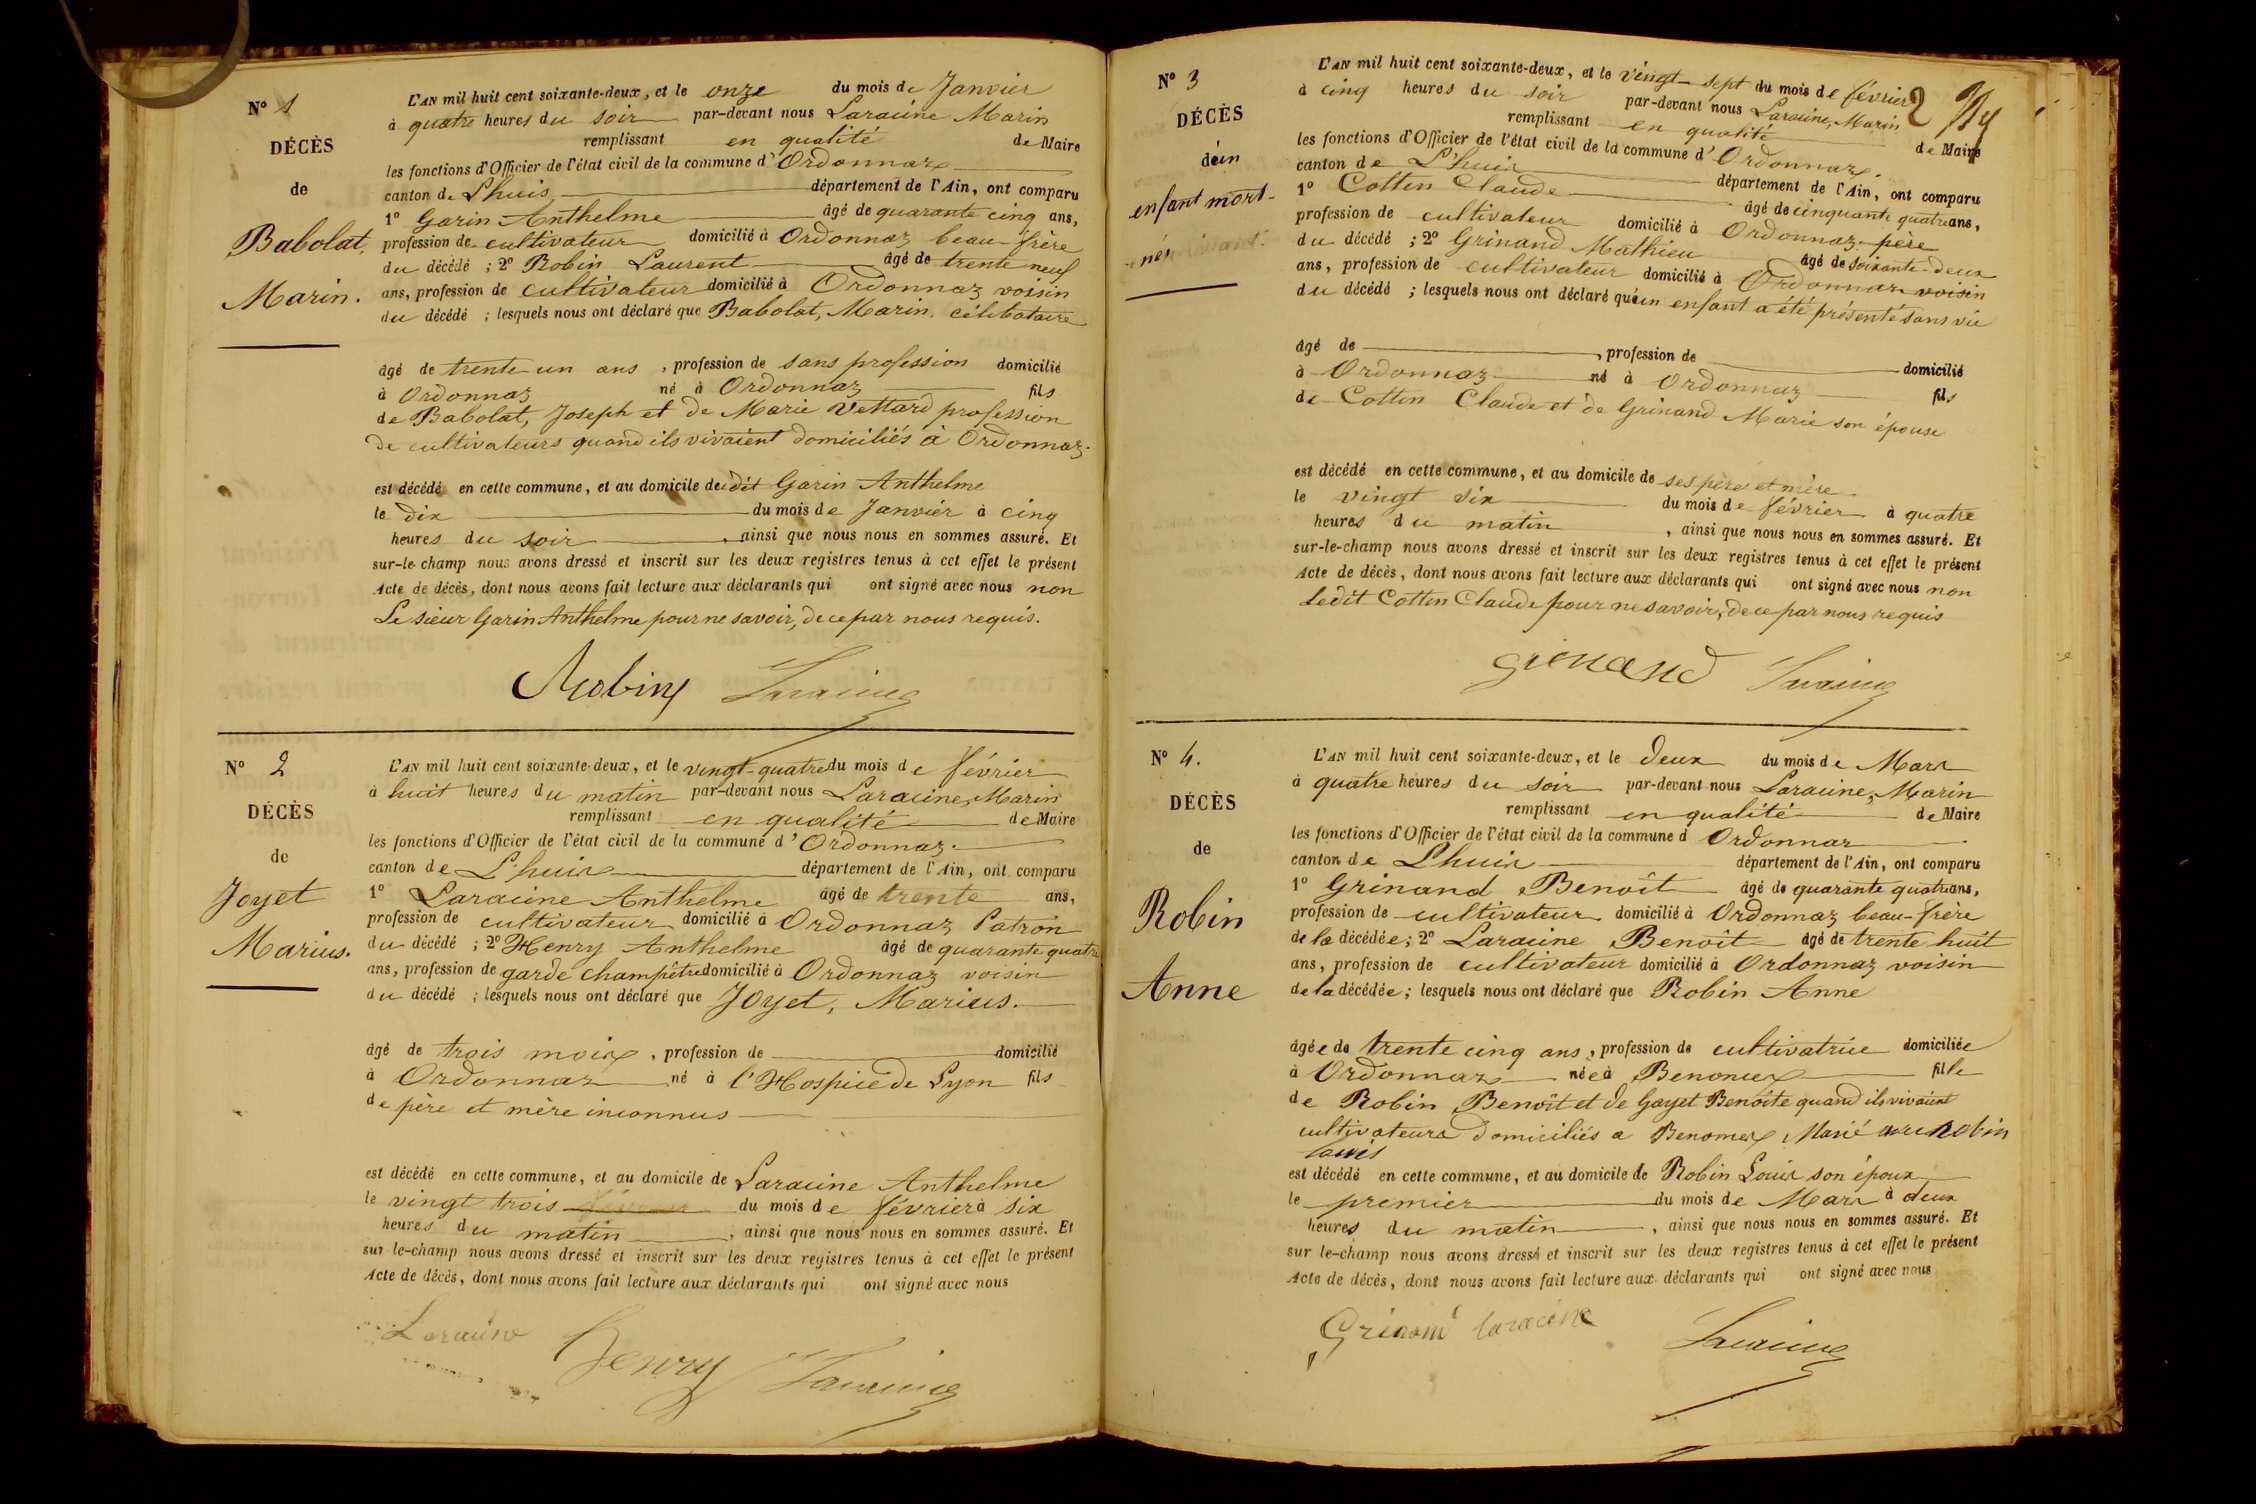 N° 1
DÉCÈS
de
Babolat,
Marin.
L'AN mil huit cent soixante-deux, et le onze du mois de Janvier
à quatre heures du soir par-devant nous Laracine Marin
remplissant en qualité de Maire
les fonctions d'Officier de l'état civil de la commune d'Ordonnaz
canton de Lhuis département de l'Ain, ont comparu
1° Garin Anthelme âgé de quarante cinq ans,
profession de cultivateur domicilié à Ordonnaz beau-frère
du décédé ; 2° Robin Laurent âgé de trente neuf
ans, profession de cultivateur domicilié à Ordonnaz voisin
du décédé ; lesquels nous ont déclaré que Babolat, Marin, célibataire
âgé de trente un ans, profession de sans profession domicilié
à Ordonnaz né à Ordonnaz fils
de Babolat, Joseph et de Marie Vettard profession
de cultivateurs quand ils vivaient domiciliés à Ordonnaz.
est décédé en cette commune, et au domicile dudit Garin Anthelme
le dix du mois de Janvier à cinq
heures du soir, ainsi que nous nous en sommes assuré. Et
sur-le-champ nous avons dressé et inscrit sur les deux registres tenus à cet effet le présent
Acte de décès, dont nous avons fait lecture aux déclarants qui ont signé avec nous non
Le sieur Garin Anthelme pour ne savoir, de ce par nous requis.
Robin Laracine
N° 2
DÉCÈS
de
Joyet
Marius.
L'AN mil huit cent soixante-deux, et le vingt-quatre du mois de février
à huit heures du matin par-devant nous Laracine, Marin
remplissant en qualité de Maire
les fonctions d'Officier de l'état civil de la commune d'Ordonnaz.
canton de Lhuis département de l'Ain, ont comparu
1° Laracine Anthelme âgé de trente ans,
profession de cultivateur domicilié à Ordonnaz Patron
du décédé ; 2° Henry Anthelme âgé de quarante quatre
ans, profession de garde champêtre domicilié à Ordonnaz voisin
du décédé ; lesquels nous ont déclaré que Joyet, Marius.
âgé de trois mois, profession de domicilié
à Ordonnaz né à l'Hospice de Lyon fils
de père et mère inconnus
est décédé en cette commune, et au domicile de Laracine Anthelme
le vingt trois du mois de février à six
heures du matin, ainsi que nous nous en sommes assuré. Et
sur le-champ nous avons dressé et inscrit sur les deux registres tenus à cet effet le présent
Acte de décès, dont nous avons fait lecture aux déclarants qui ont signé avec nous
Laracine Henry Laracine
2
N° 3
DÉCÈS
d'un
enfant mort-
né
L'AN mil huit cent soixante-deux, et le vingt-sept du mois de février
à cinq heures du soir par-devant nous Laracine, Marin
remplissant en qualité de Maire
les fonctions d'Officier de l'état civil de la commune d'Ordonnaz.
canton de L'huis département de l'Ain, ont comparu
1° Cottin Claude âgé de cinquante quatre ans,
profession de cultivateur domicilié à Ordonnaz père
du décédé ; 2° Grinand Mathieu âgé de soixante-deux
ans, profession de cultivateur domicilié à Ordonnaz voisin
du décédé ; lesquels nous ont déclaré qu'un enfant a été présenté sans vie
âgé de , profession de domicilié
à Ordonnaz né à Ordonnaz fils
de Cottin Claude et de Grinand Marie son épouse
est décédé en cette commune, et au domicile de ses père et mère
le vingt six du mois de février à quatre
heures du matin, ainsi que nous nous en sommes assuré. Et
sur-le-champ nous avons dressé et inscrit sur les deux registres tenus à cet effet le présent
Acte de décès, dont nous avons fait lecture aux déclarants qui ont signé avec nous non
ledit Cottin Claude pour ne savoir, de ce par nous requis
grenand Laracine
N° 4.
DÉCÈS
de
Robin
Anne
L'AN mil huit cent soixante-deux, et le deux du mois de Mars
à quatre heures du soir par-devant nous Laracine, Marin
remplissant en qualité de Maire
les fonctions d'Officier de l'état civil de la commune d Ordonnaz
canton de Lhuis département de l'Ain, ont comparu
1° Grinand Benoît âgé de quarante quatre ans,
profession de cultivateur domicilié à Ordonnaz beau-frère
de la décédée ; 2° Laracine Benoît âgé de trente huit
ans, profession de cultivateur domicilié à Ordonnaz voisin
de la décédée ; lesquels nous ont déclaré que Robin Anne
âgée de trente cinq ans, profession de cultivatrice domiciliée
à Ordonnaz née à Benonces fille
de Robin Benoît et de Gayet Benoîte quand ils vivaient
cultivateurs domiciliés a Benonces Marié avec Robin
Louis
est décédé en cette commune, et au domicile de Robin Louis son époux
le premier du mois de Mars à deux
heures du matin, ainsi que nous nous en sommes assuré. Et
sur le-champ nous avons dressé et inscrit sur les deux registres tenus à cet effet le présent
Acte de décès, dont nous avons fait lecture aux déclarants qui ont signé avec nous
Grinand laracine Laracine